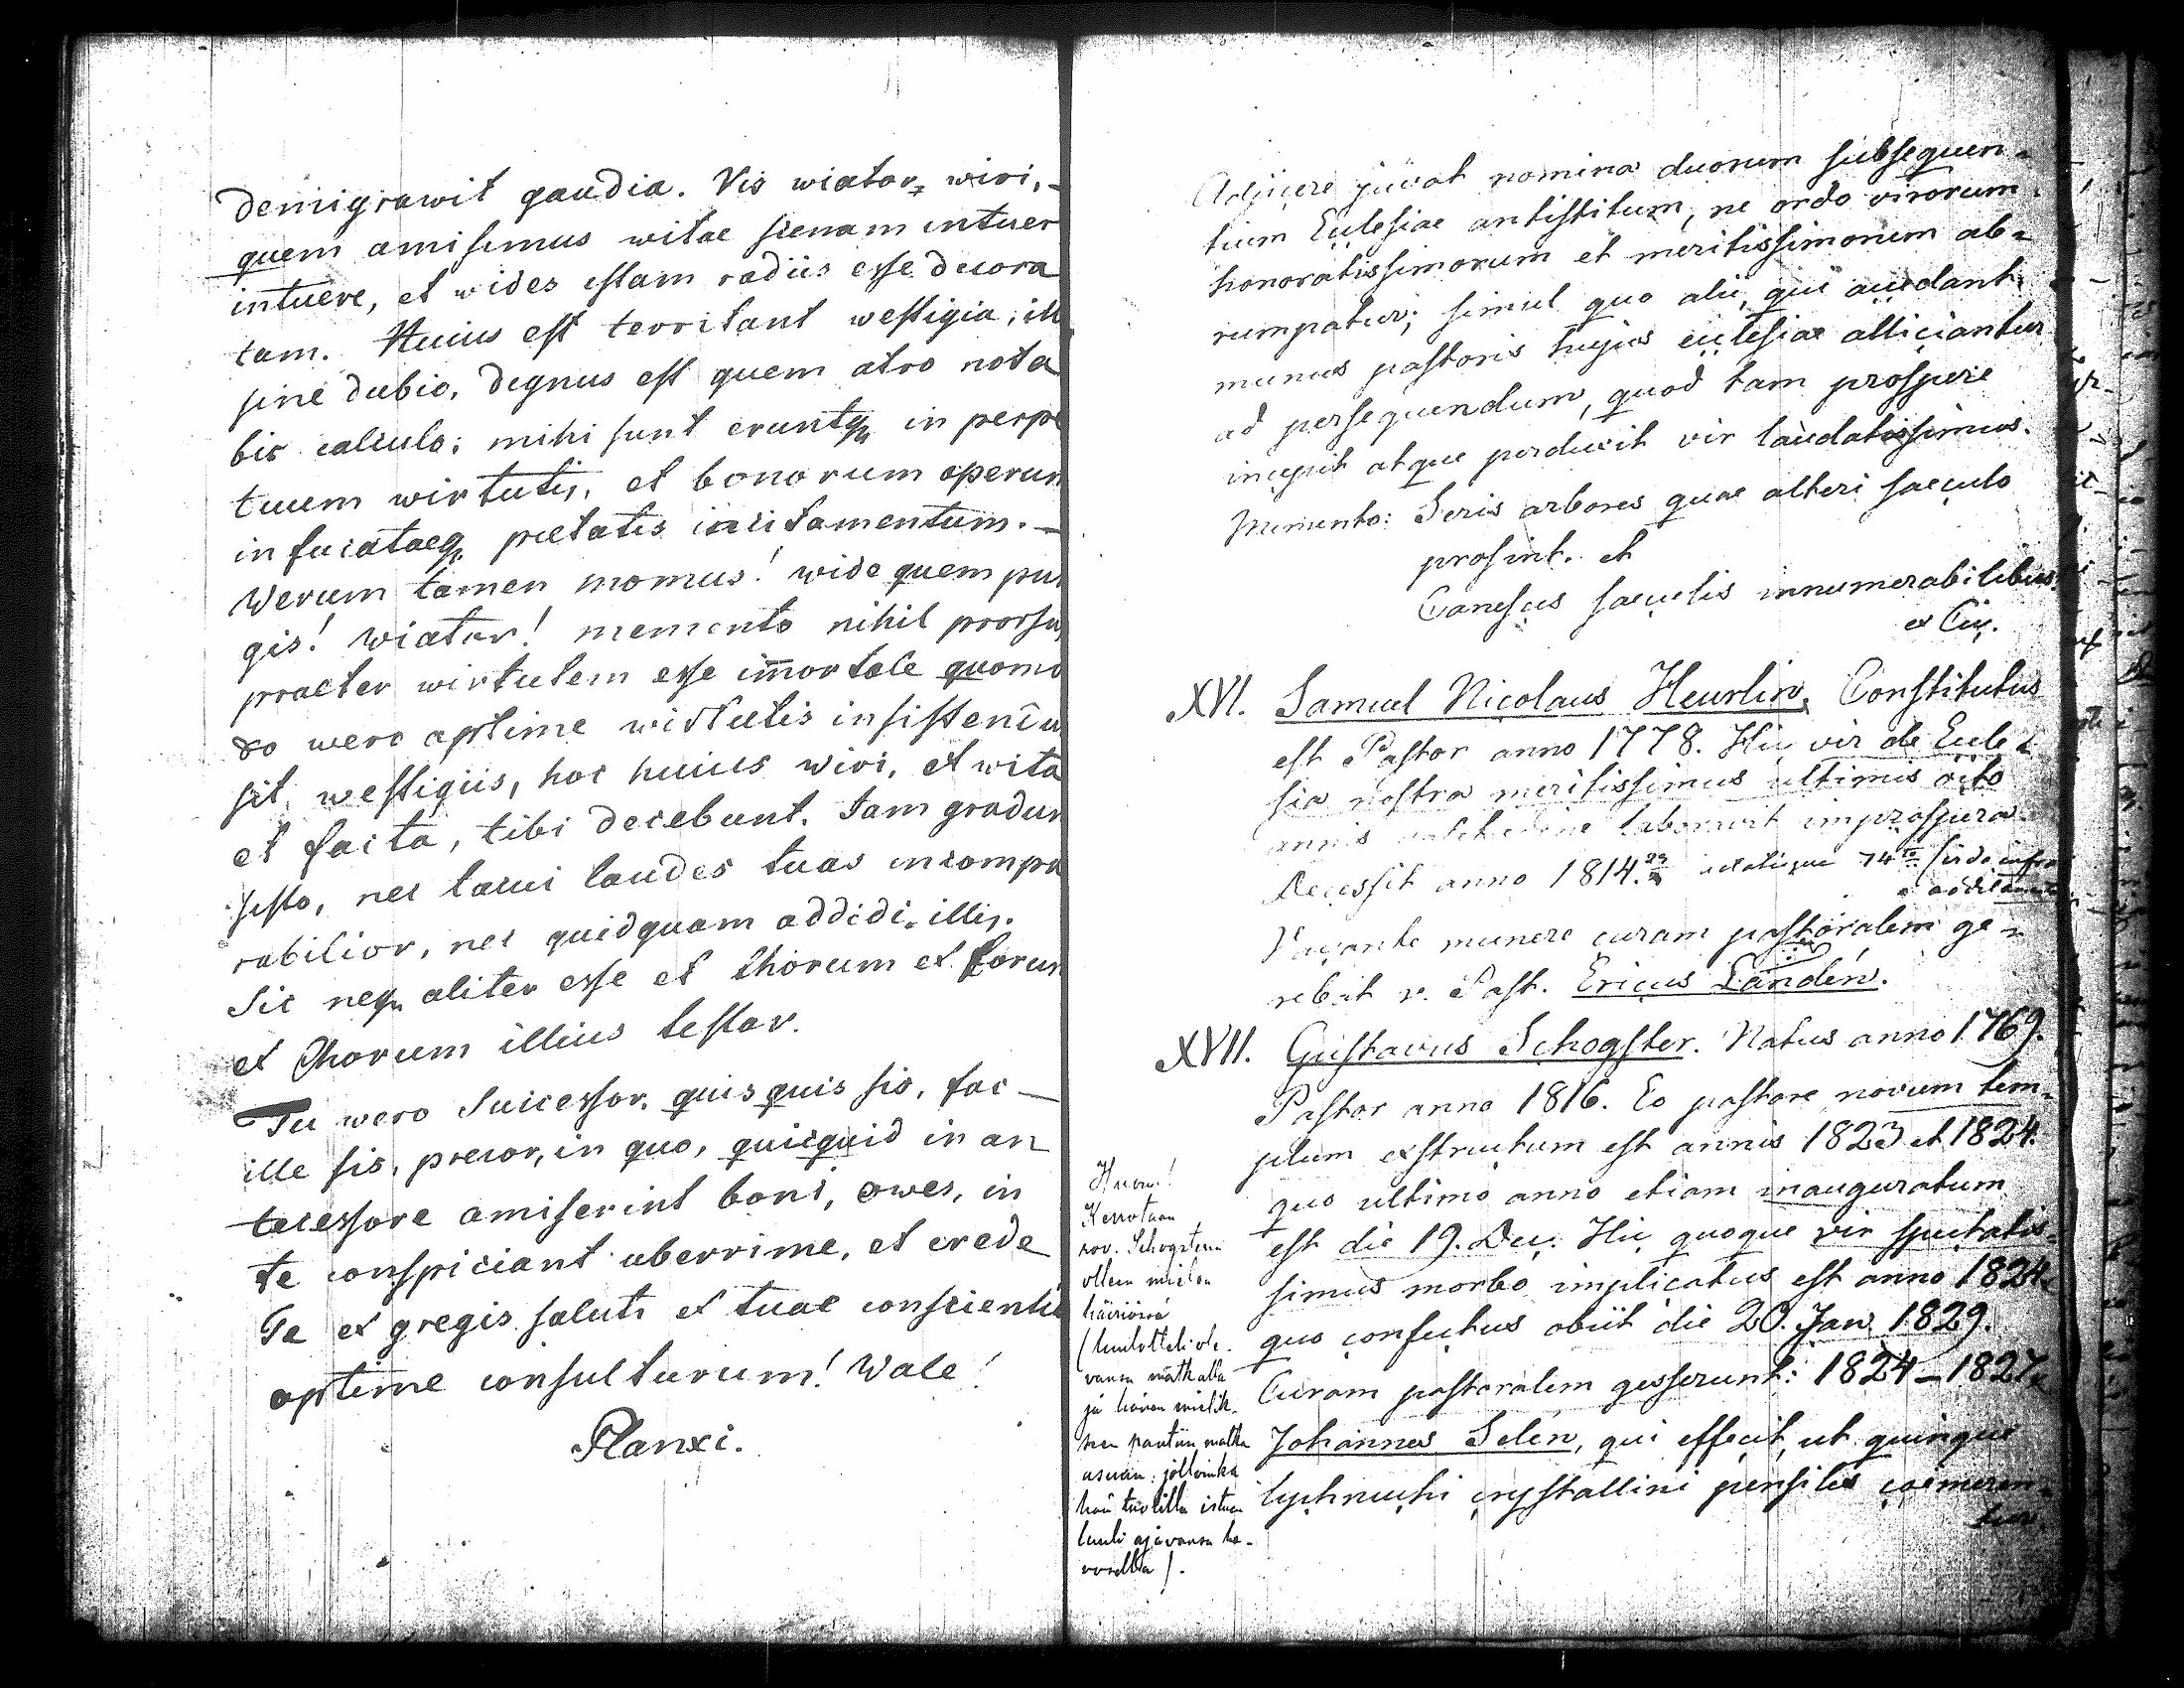 demigrawit gaudia. Vis wiator, wiri,
quem amisimus witae scenam intuer
intuere, et wides estam radiis esse decora
tam. Huius est territant westigia, ill
sine dubio, dignus est quem atro nota
bis calculo; mihi sunt eruntq, in perpe
tuum wirtutis, et bonorum operum
infucataeq, pietatis incitamentum. —
Werum tamen momus! wide quem pun
gis! Wiator! memento nihil prorsus
praeter wirtutem esse imortale quomo
do wero optime wirtutis insistendum
sit, westigiis, hoc huius wiri, et wita
et facta, tibi docebunt. Iam gradum
sisto, nec tacui laudes tuas incompa
rabilior, nec quidquam addidi illis.
Sic neq, aliter esse et thorum et forum
et Chorum illius testor.
Tu wero Successor, quisquis sis, fac —
ille sis, precor, in quo, quicquid in an
tecessore amiserint boni, owes, in
te conspiciant uberrime, et crede
Te et gregis saluti et tuae conscientie
optime consulturum! Wale!
Planxi.
Adjicere juvat nomina duorum subsequen-
tium Ecclesiae antistitum, ne ordo virorum
honoratissimorum et meritissimorum ab-
rumpatur; simul quo alii, qui audant
munus pastoris hujus ecclesiae alliciantur
ad persequendum, quod tam prospere
incepit atque perduxit vir laudatissimus.
Memento: Seris arbores quae alteri saeculo
prosint. et
Canescus saeculis innumerabilibus
ex Cic.
XVI. Samuel Nicolaus Heurlin, Constitutus
est Pastor anno 1778. Hic vir de Eccle-
sia nostra meritissimus ultimis octo
annis valetudine laboravit improspera.
Decessit anno 1814. aetatisque 74to
Vacante munere curam pastoralem ge-
rebat v. Past. Ericus Landén.
XVII. Gustavus Schogster. Natus anno 1769.
Pastor anno 1816. Eo pastore novum tem-
plum exstructum est annis 1823 et 1824.
quo ultimo anno etiam inauguratum
est die 19. Dec. Hic quoque vir spectatis-
simus morbo implicatus est anno 1824
quo confectus obiit die 20. Jan. 1829.
Curam pastoralem gesserunt: 1824–1827
Johannes Selén, qui effecit, ut quinque
lychnuchi crystallini pensiles coemeren-
tur.
Huom!
Kerrotaan
rov. Schogsterin
olleen mielen
häiriössä
(luulotteli ole-
vansa matkalla
ja hänen mielik-
seen pantiin matka
asuun, jolloinka
hän tuolilla istuen
luuli ajavansa he-
vosella).